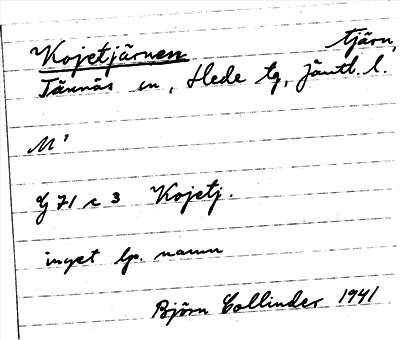 Kojetjärnen tjärn,
Tännäs sn, Hede tg, Jämtl. l.
M'
G 71 c 3 Kojetj.
inget lp. namn
Björn Collinder 1941